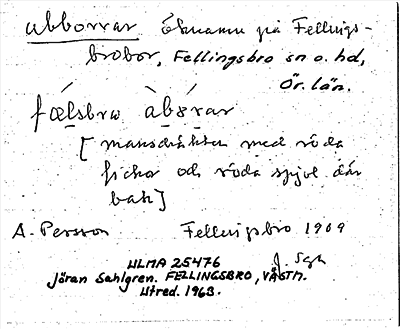 abborrar Öknamn på Fellings-
brobor, Fellingsbro sn o. hd,
Ör. län.
fǽlsbrω àbɤ́rar
[mansdräkten med röda
fickor och röda spjol där
bak]
A. Persson Fellingsbro 1909
ULMA 25476 J. Sgn
Jöran Sahlgren. FELLINGSBRO, VÄSTM.
Utred. 1963.